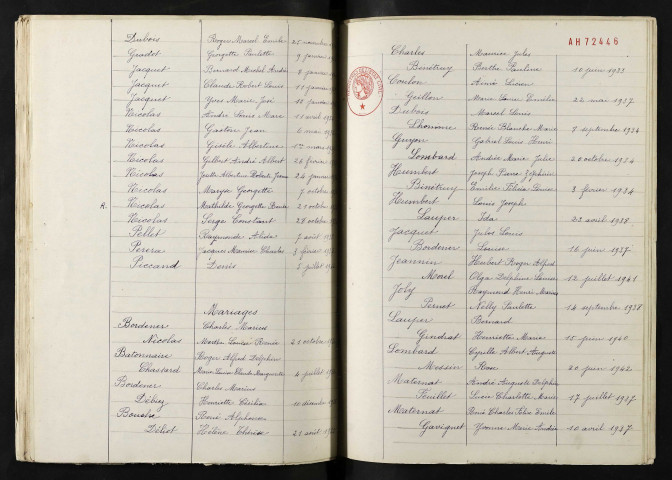 Dubois Roger Marcel Emile 25 novembre
Gradot Georgette Paulette 9 janvier
Jacquet Bernard Michel André 8 janvier
Jacquet Claude Robert Louis 11 janvier
Jacquet Yves Marie José 11 janvier
Nicolas André Louis Marc 11 avril
Nicolas Gaston Jean 6 mai
Nicolas Gisèle Albertine 1er mars
Nicolas Gilbert André Albert 26 février
Nicolas Albertine 24 janvier
Nicolas Georgette 7 octobre
R. Nicolas Mathilde Georgette 21 octobre
Nicolas Serge Constant 28 octobre
Pellet Raymonde Alida 7 août
Perera Jacques Maurice Charles 3 février
Piccand Denis 5 juillet
Mariages
Bordener Charles Marius
Nicolas Marthe Louise Renée 21 octobre
Batonnaire Roger Alfred Delphin
Chassard Marie Louise Marguerite 4 juillet
Bordener Charles Marius
Henriette 10 décembre
René Alphonse
Déliot Hélène Thérèse 21 août
AH 72446
Charles Maurice Jules
Bénétruy Berthe Pauline 10 juin 1933
Coulon Aimé
Geillon Marie 22 mai 1937
Dubois Marcel Louis
Lhomme Renée Blanche Marie 7 septembre 1934
Guyon Gabriel Louis Henri
Lombard Andrée Marie Julie 20 octobre 1934
Humbert Joseph Pierre Zéphirin
Bénétruy Emilie 3 février 1934
Humbert Louis Joseph
Lauper Ida 23 avril 1938
Jacquet Jules Louis
Bordener Louise 16 juin 1937
Jeannin Herbert Roger Alfred
Morel Olga Delphine 12 juillet 1941
Joly Raymond Henri
Pernet Nelly Paulette 14 septembre 1938
Lauper Bernard
Gindrat Henriette Marie 15 juin 1940
Lombard Cyrille Albert Auguste
Messin Rose 20 juin 1942
Maternat André Auguste Delphin
Feuillet Lucie Charlotte Marie 17 juillet 1937
Maternat René Charles Emile
Gavignet Yvonne Marie 10 avril 1937